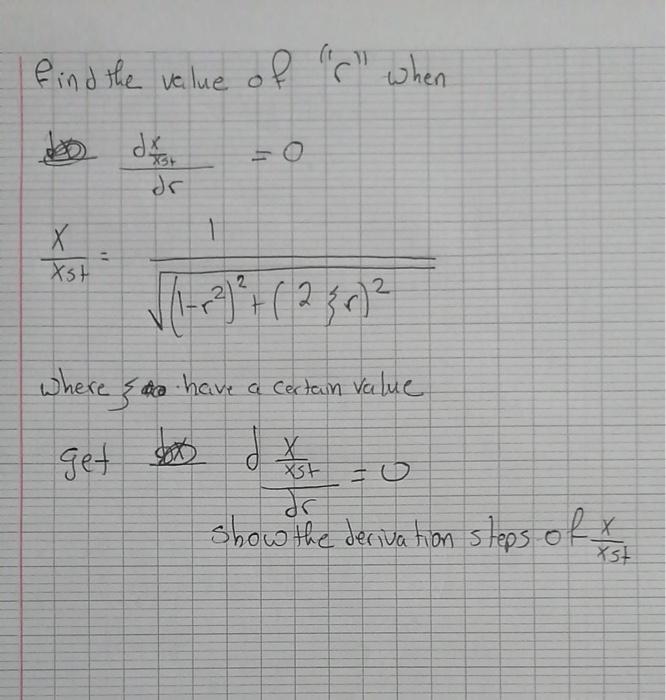 find the value of "r" when
d x/xst / dr = 0
x/xst = 1 / √((1-r²)² + (2ξr)²)
where ξ have a certain value
get d x/xst / dr = 0
show the derivation steps of x/xst